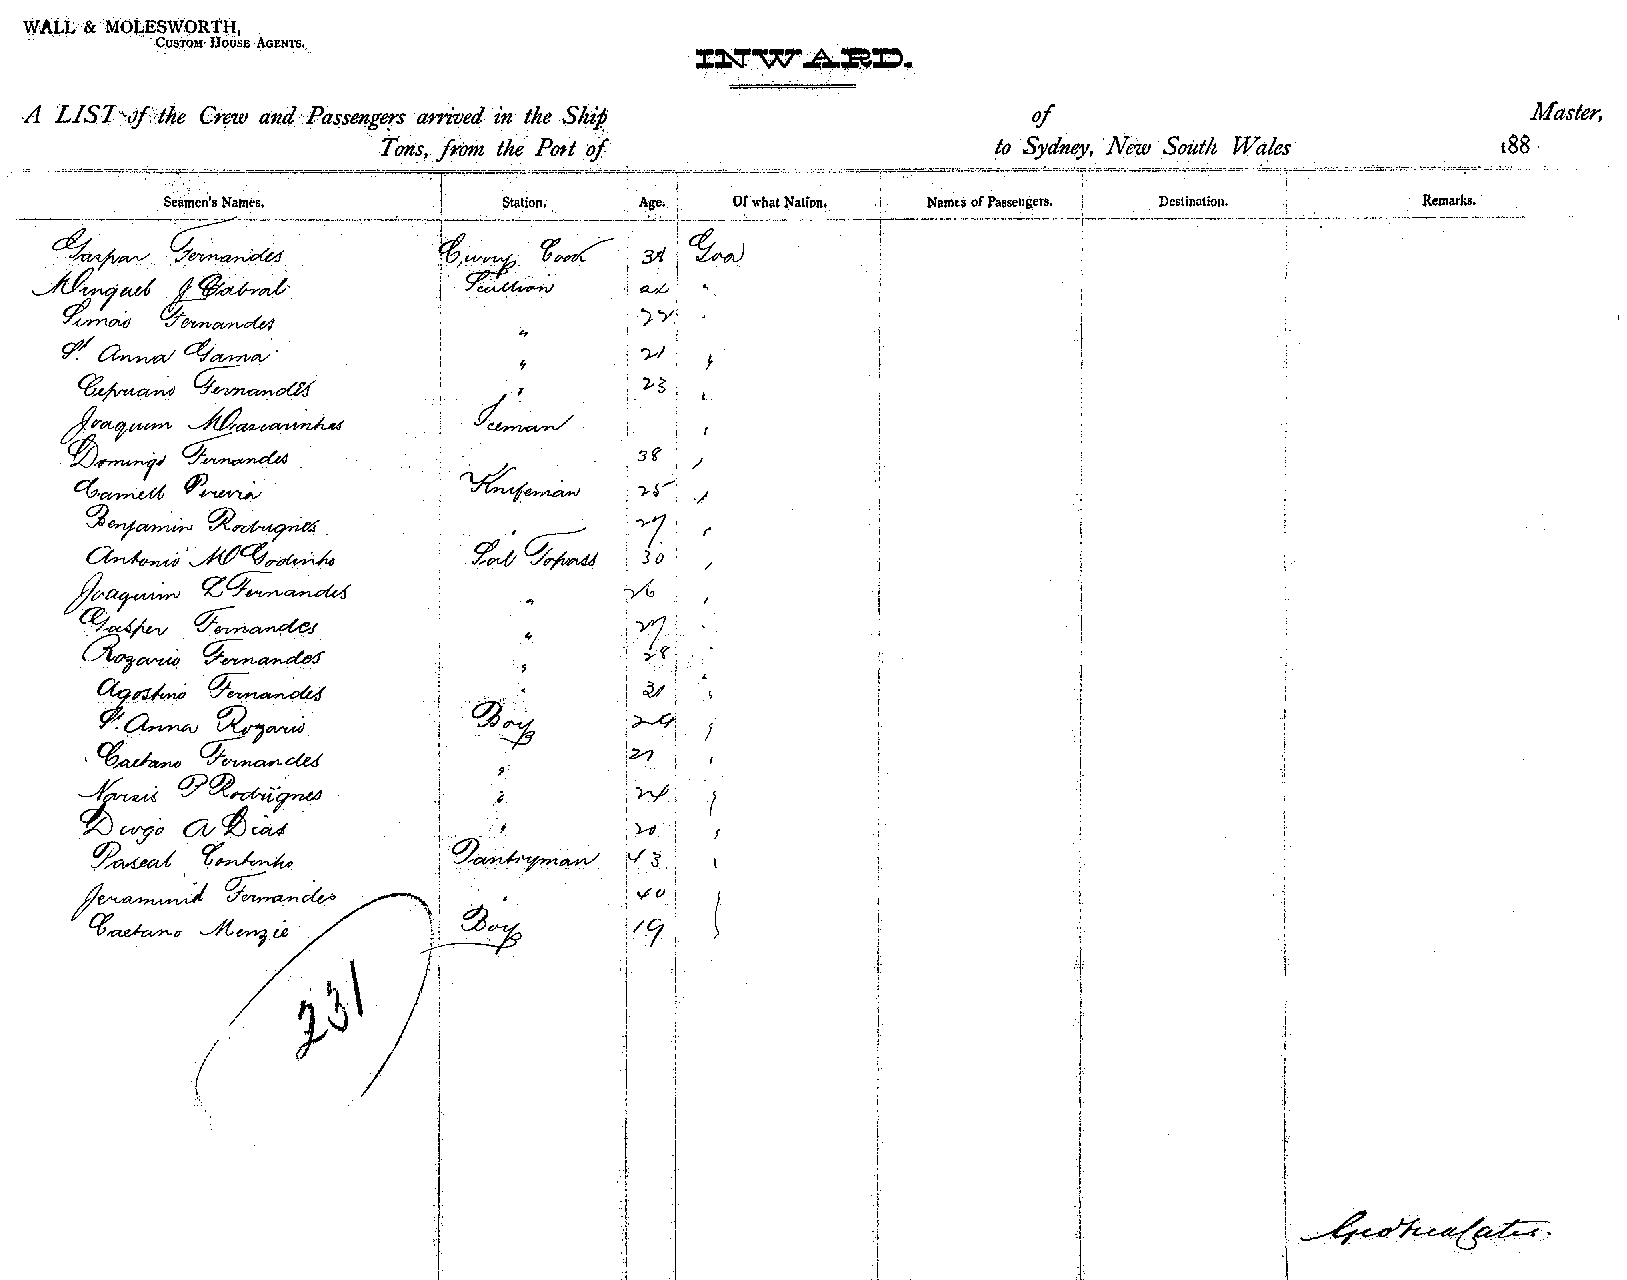 WALL & MOLESWORTH,
CUSTOM HOUSE AGENTS.
INWARD.
A LIST of the Crew and Passengers arrived in the Ship of Master,
Tons, from the Port of to Sydney, New South Wales 188
Seamen's Names. Station. Age. Of what Nation. Names of Passengers. Destination. Remarks.
Gaspar Fernandes Curry Cook Goa
Minguel J Cabral Scullion "
Simao Fernandes " 22 "
St Anna Gama " 21 "
Cepriano Fernandes " 23 "
Joaquim Mascarinhas Iceman "
Domingo Fernandes 38 "
Camell Pereira Knifeman 25 "
Benjamin Rodrignes " 27 "
Antonio M Godinho Topass 30 "
Joaquim L Fernandes " 26 "
Gasper Fernandes " 27 "
Rozario Fernandes " 28 "
Agostino Fernandes " 31 "
St Anna Rozario Boy 24 "
Caetano Fernandes " 21 "
Narsis P Rodrignes " 24 "
Diogo A Dias " 20 "
Pascal Continho Pantryman 43 "
Fernandes " 40 "
Caetano Menzie Boy 19 "
231